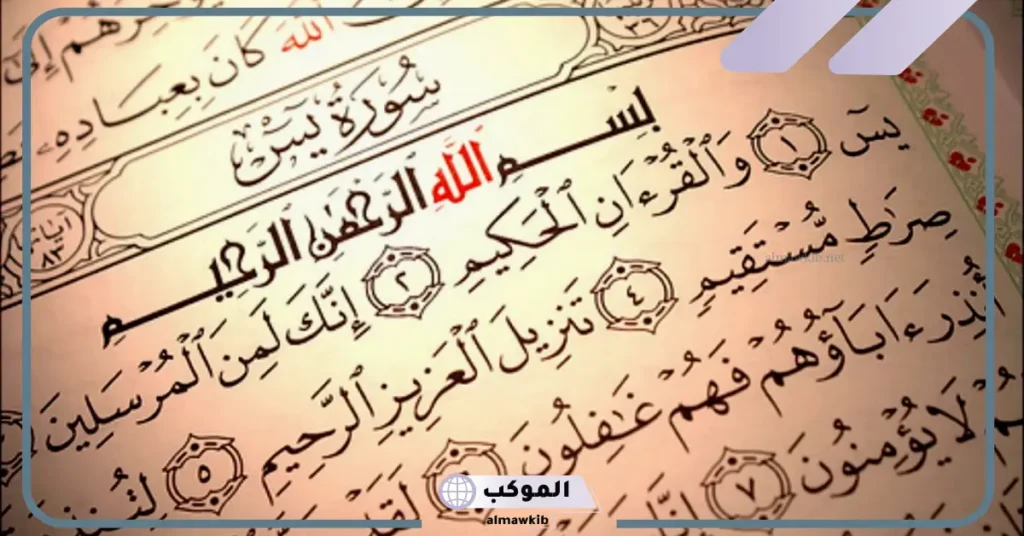 ٱللَّهَ كَانَ بِعِبَادِهِۦ
سُورَةُ يسٓ
آيَاتُهَا ٨٣
بِسْمِ ٱللَّهِ ٱلرَّحْمَٰنِ ٱلرَّحِيمِ
يسٓ ١ وَٱلْقُرْءَانِ ٱلْحَكِيمِ ٢ إِنَّكَ لَمِنَ ٱلْمُرْسَلِينَ
صِرَٰطٍ مُّسْتَقِيمٍ ٤ تَنزِيلَ ٱلْعَزِيزِ ٱلرَّحِيمِ ٥
أُنذِرَ ءَابَآؤُهُمْ فَهُمْ غَٰفِلُونَ لَقَدْ
لَا يُؤْمِنُونَ ٧ إِنَّا
almawkib.net
الموكب
almawkib